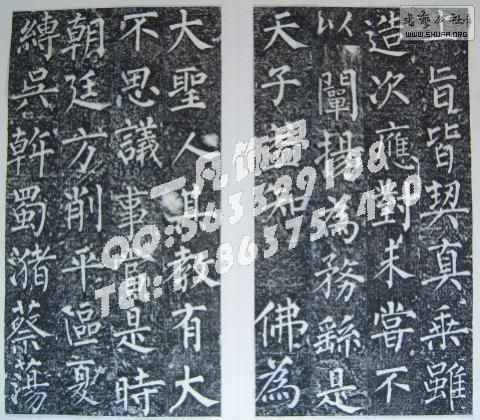 旨皆契真乘雖
造次應對未嘗不
以闡揚為務繇是
天子益知 佛為
大聖人其教有大
不思議事當是時
朝廷方削平區夏
縛吳斡蜀瀦蔡蕩
书艺公社
WWW.SHUFA.ORG
一凡饰界
QQ:563329158
TEL:15863753410